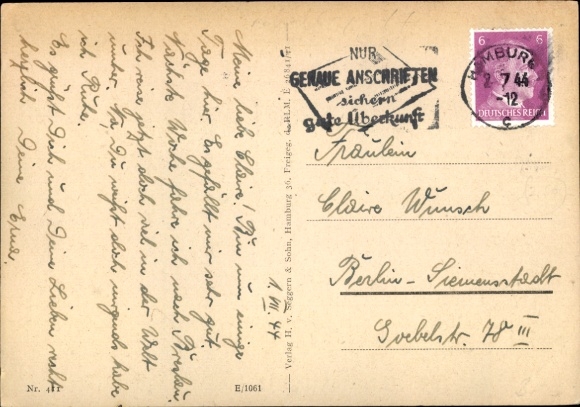 1. VII. 44
Meine liebe Claire! Bin nun einige
Tage hier. Es gefällt mir sehr gut.
Nächste Woche fahre ich nach Breslau.
Ich reise jetzt doch viel in der Welt
umher. Na Du weißt doch nirgends habe
ich Ruhe.
Es grüßt Dich und Deine Lieben recht
herzlich Deine Erna.
Nr. 411
E/1061
Verlag H. v. Seggern & Sohn, Hamburg 36, Freigeg. d. RLM.
NUR
GENAUE ANSCHRIFTEN
sichern
gute Überkunft
6 6
DEUTSCHES REICH
HAMBURG
2.7.44
-12
c
Fräulein
Claire Wunsch
Berlin-Siemensstadt
Goebelstr. 78 III